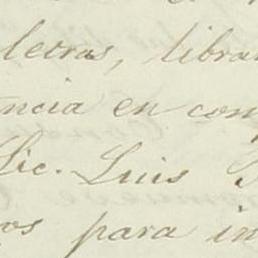 letras, libra
ncia en con
Lic. Luis
os para in